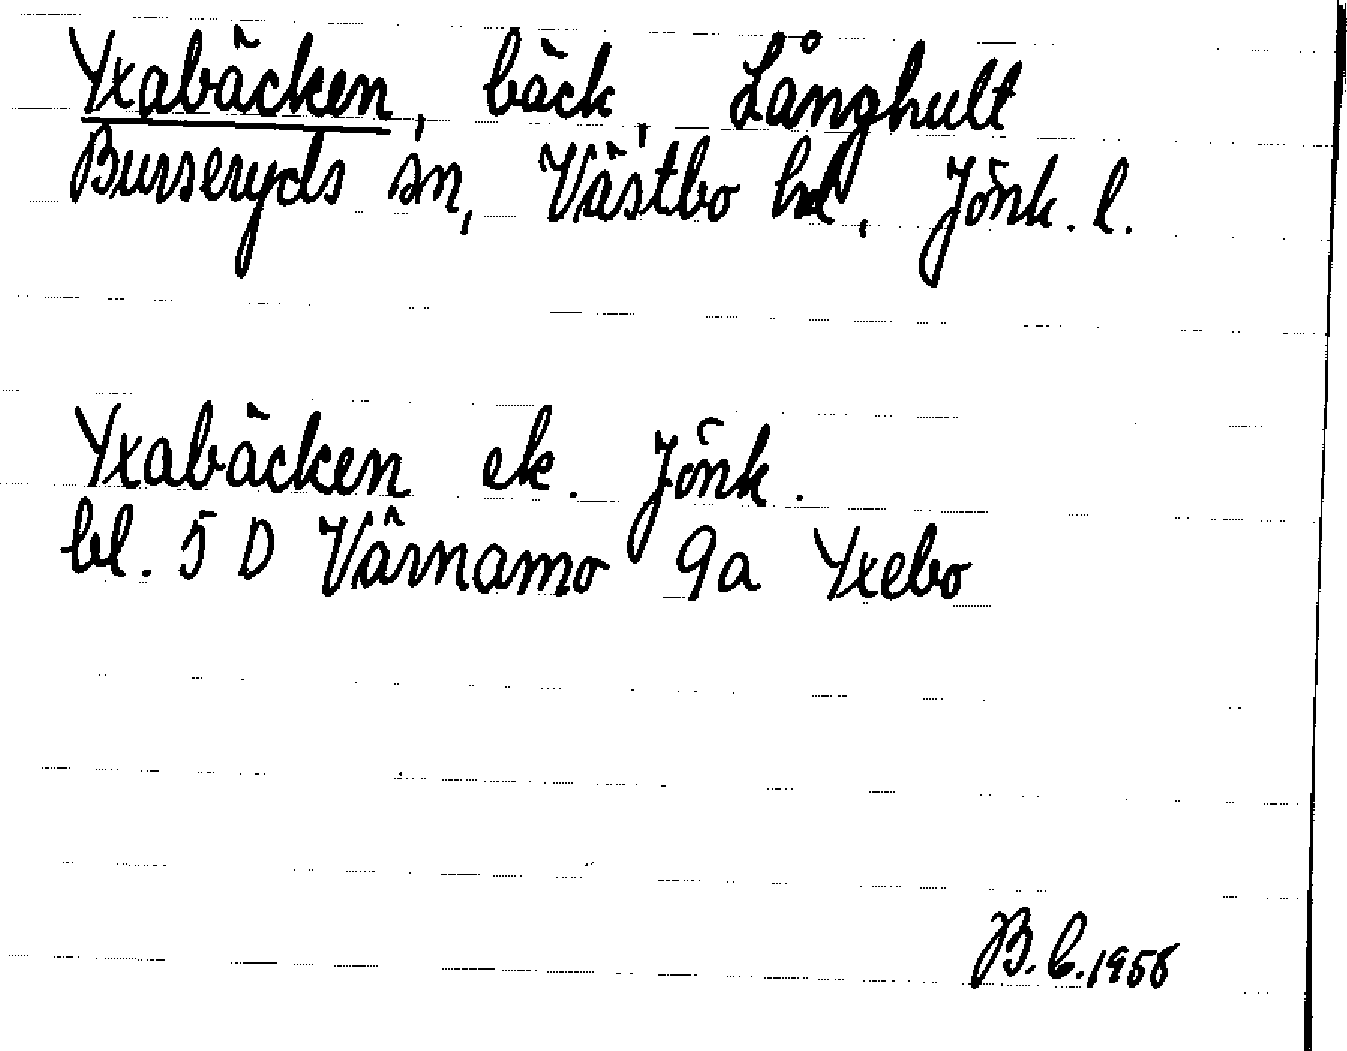 Yxabäcken, bäck, Långhult
Burseryds sn, Västbo hd, Jönk. l.
Yxabäcken ek. Jönk.
bl. 5 D Värnamo 9a Yxebo
B. C. 1958